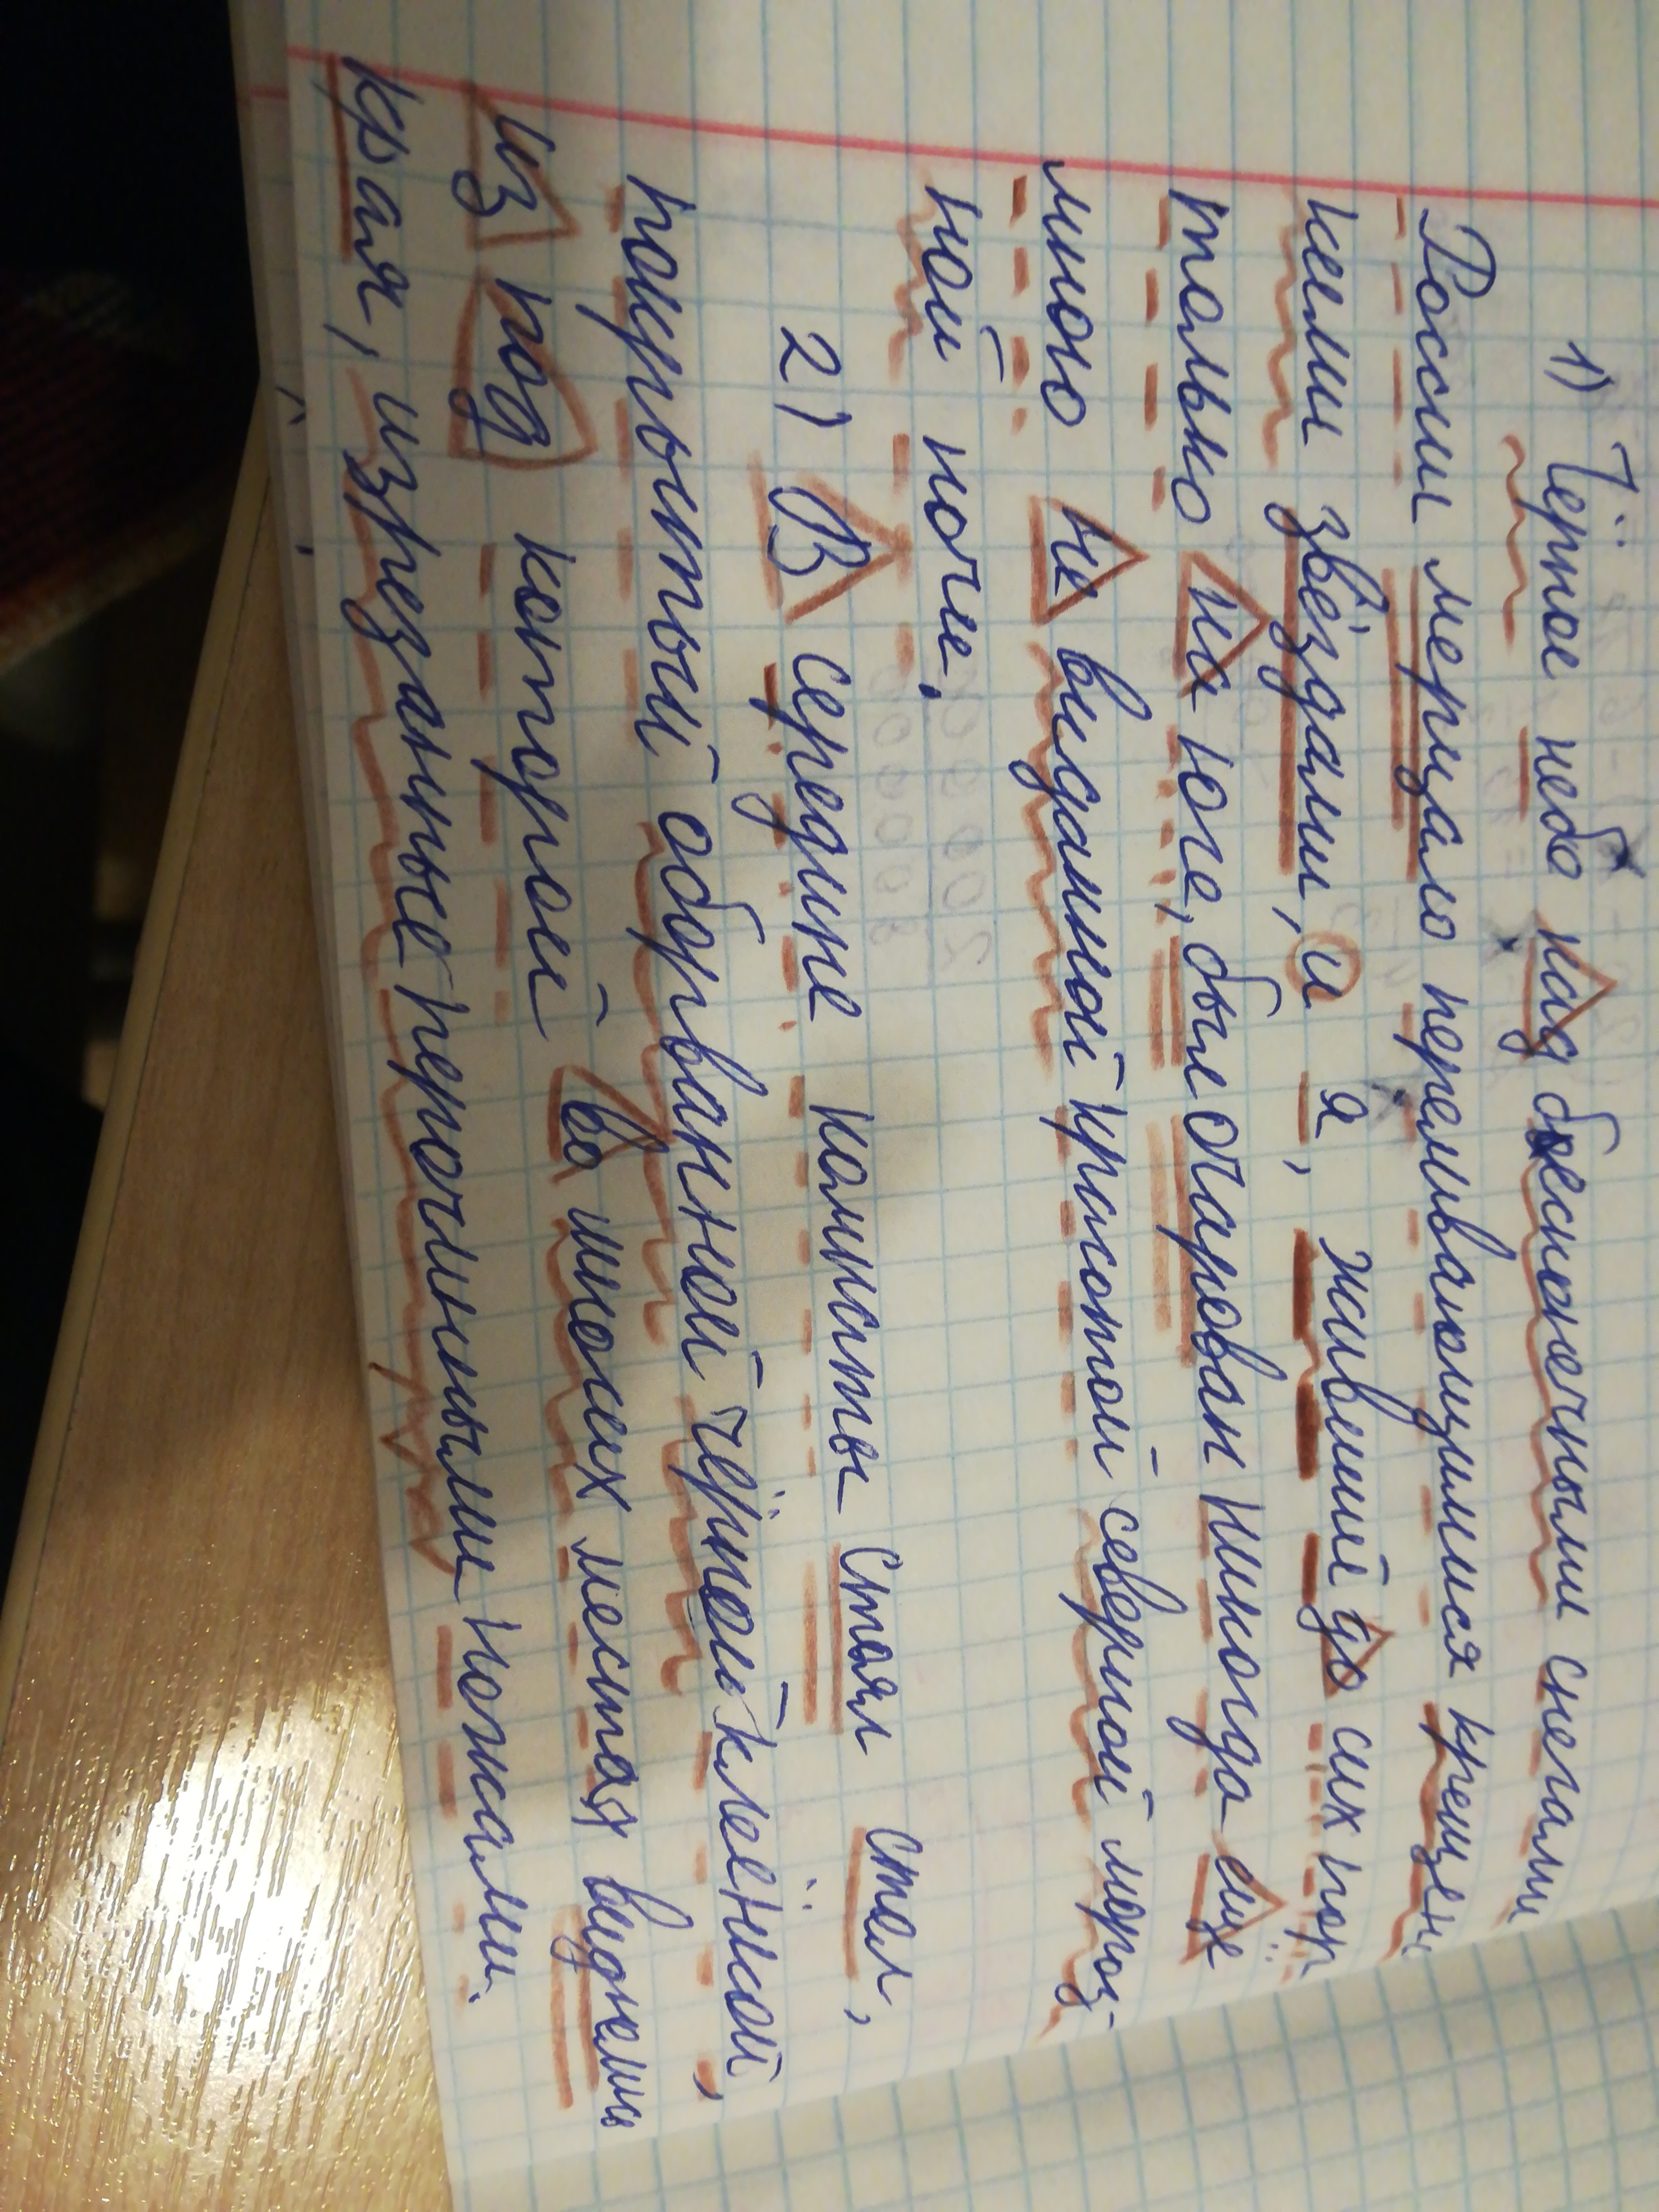 1) Чёрное небо над бесконечными снегами
России мерцало переливающимися крещен
кеми звёздами, и я, живший до сих пор
только на юге, был очарован никогда ещё
мною не виданной красотой северной мороз-
ной ночи.
2) В середине комнаты стоял стол,
покрытый оборванной чёрной клеёнкой,
из под которой во многих местах виднелись
края, изрезанные перочинными ножами.